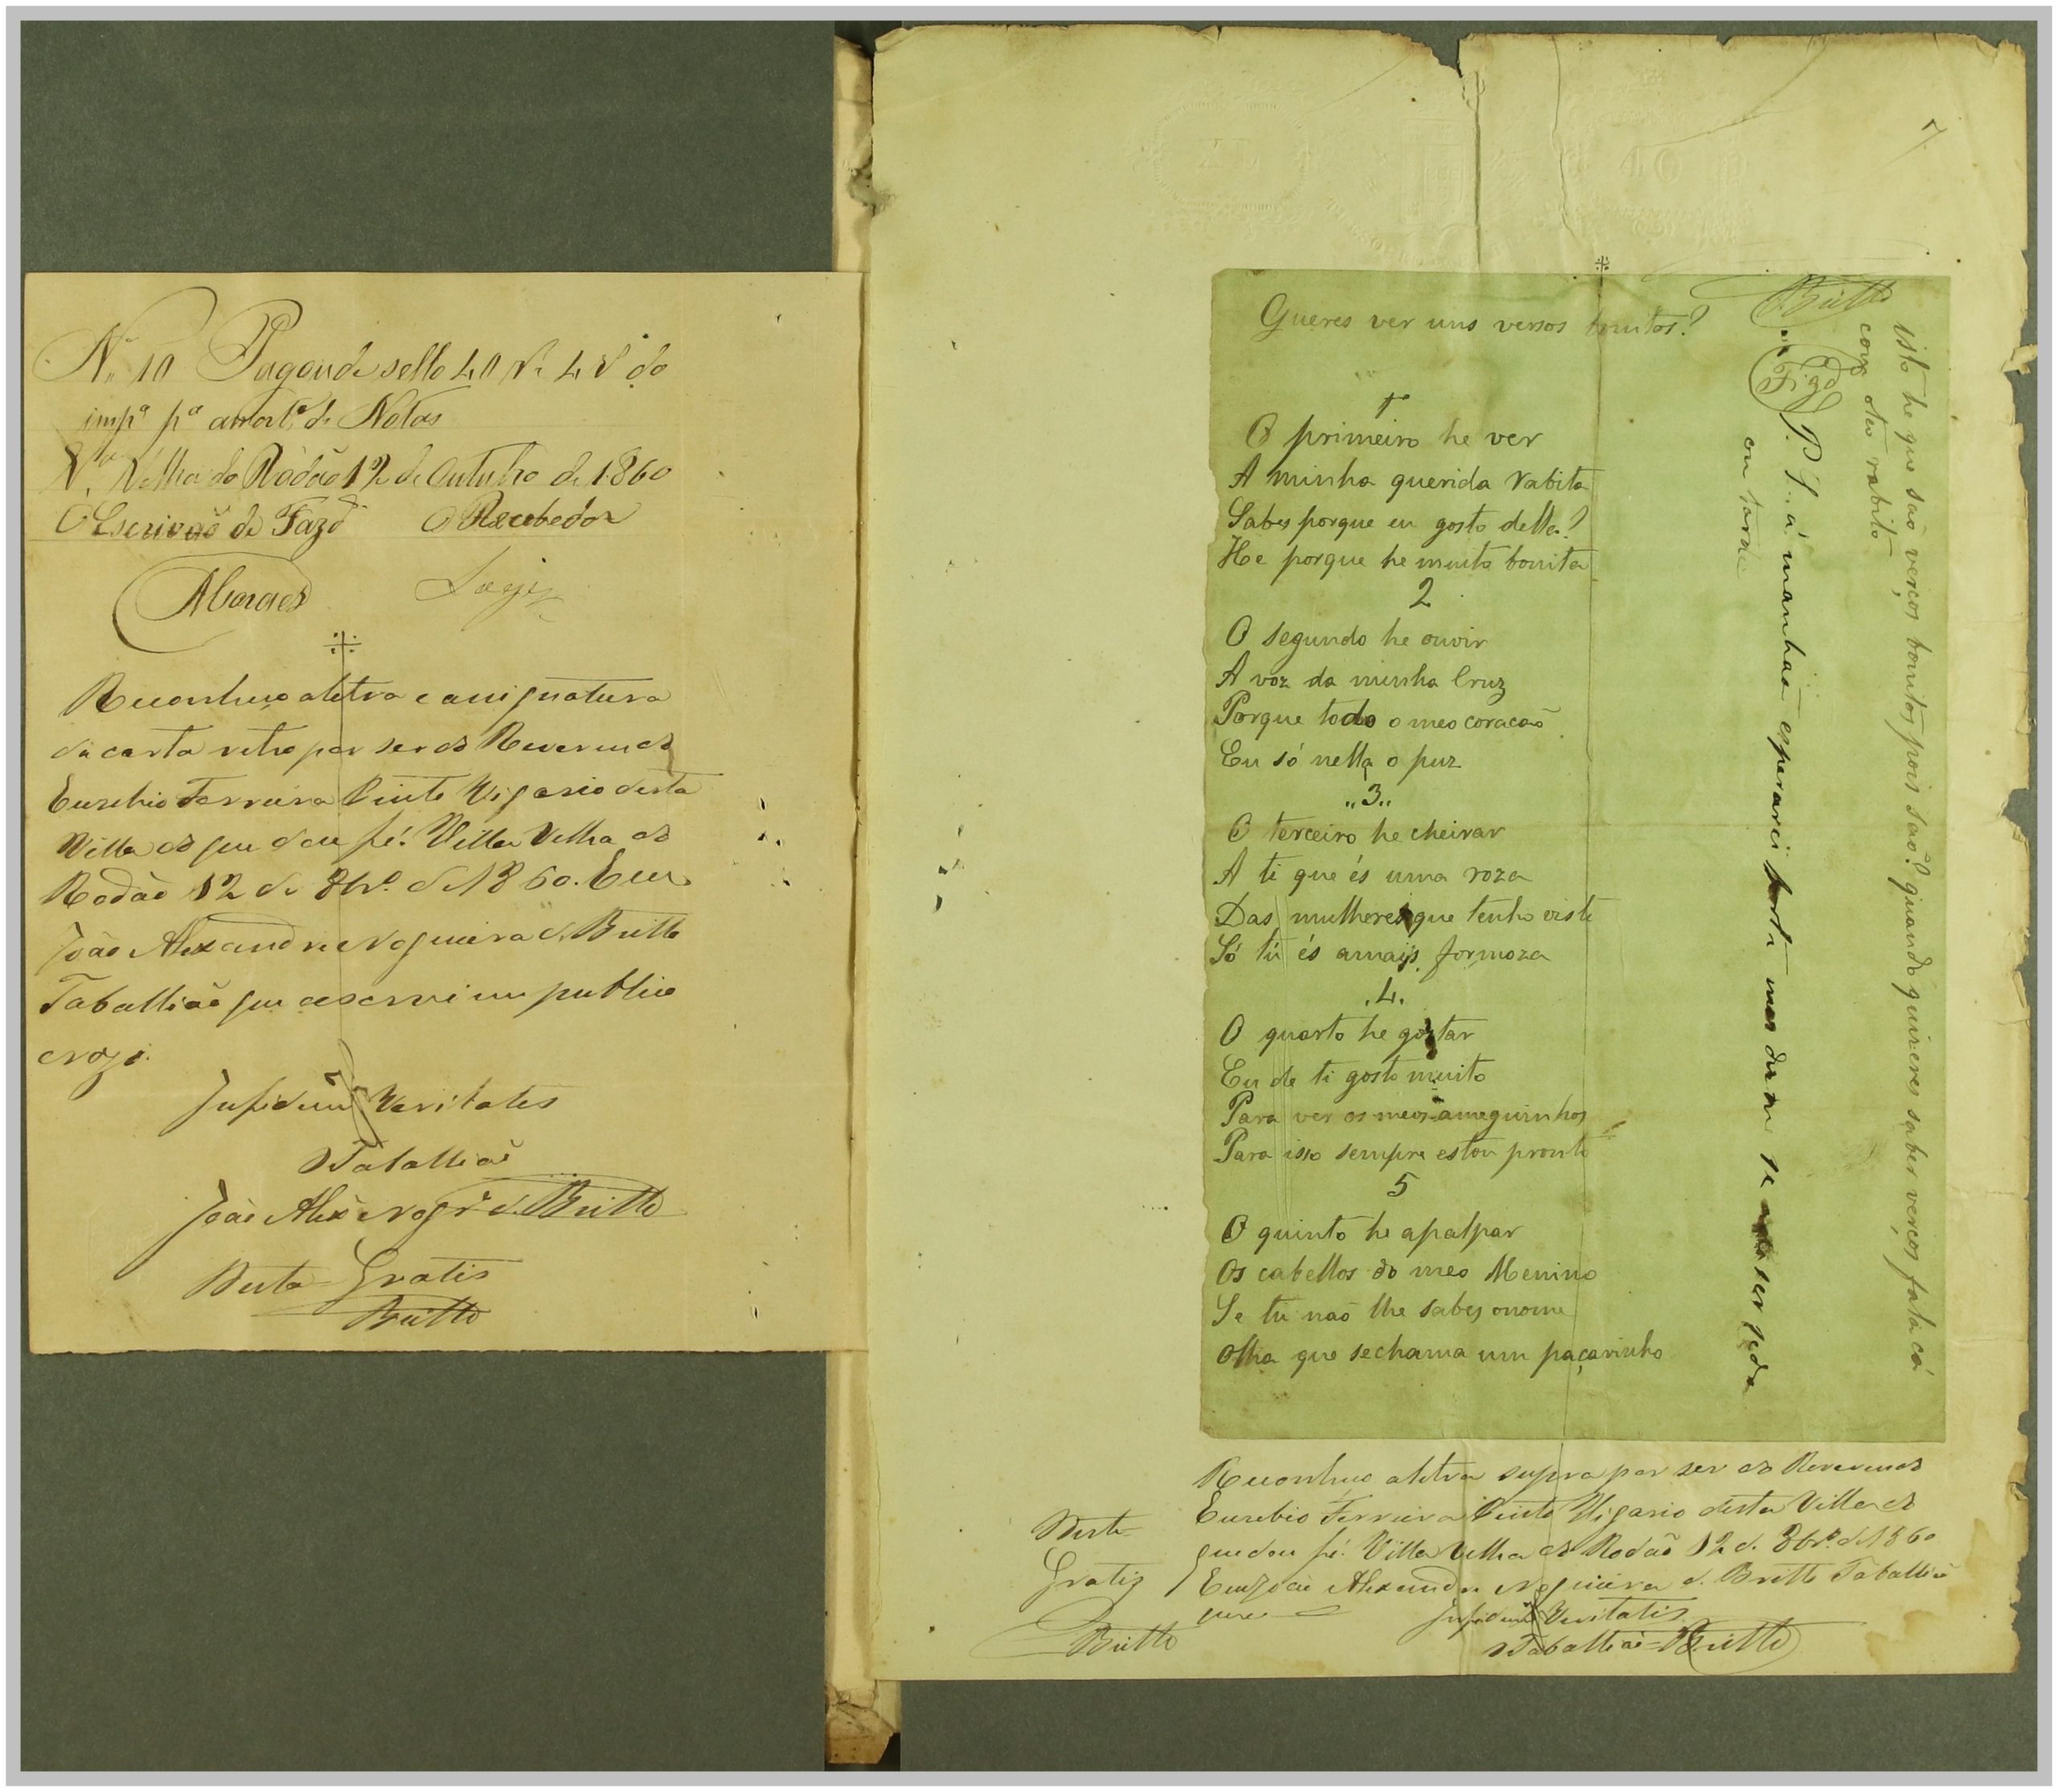 Nº 10 Pagou de sello 40 rs 4 rs do
impº pª amortº de Notas
Vª Velha do Ródão 12 de Outubro de 1860
O Escrivaõ de Fazdª O Recebedor
Moraes
Reconheço a letra e assignatura
da carta retro por ser do Reverendo
Eusebio Ferreira Pinto Vigario desta
Villa do que dou fé. Villa Velha do
Rodão 12 de 8brº de 1860. Eu
João Alexandre Nogueira de Britto
Taballião que o escrevi em publico
e razo.
Em fé de Veritates
O Taballiaõ
João Alexe Nogrª de Britto
Desta Gratis
Britto
7
Queres ver uns versos bonitos?
1
O primeiro he ver
A minha querida rabita
Sabes porque eu gosto della?
He porque he muito bonita
2
O segundo he ouvir
A voz da minha Cruz
Porque todo o meo coracaõ
Eu só nella o puz
,,3,,
O terceiro he cheirar
A ti que és uma roza
Das mulheres que tenho visto
Só tú és a mais formoza
.4.
O quarto he gostar
Eu de ti gosto muito
Para ver os meos ameguinhos
Para isso sempre estou pronto
5
O quinto he apalpar
Os cabellos do meo Menino
Se tu naõ lhe sabes o nome
Olha que se chama um paçarinho
Isto he que saõ verços bonitos pois saõ? quando quizeres saber verços fala cá
com o teo rabito
Britto
Fizdª
P. S. á manhãa esperarei
ou tarde
Reconheço a letra supra por ser do Reverendo
Eusebio Ferreira Pinto Vigario desta Villa do
que dou fé. Villa Velha do Rodaõ 12 de 8brº de 1860
Eu João Alexandre Nogueira de Britto Taballião
Em fé de Veritatis
O Taballiaõ = Britto
Desta
Gratis
Britto